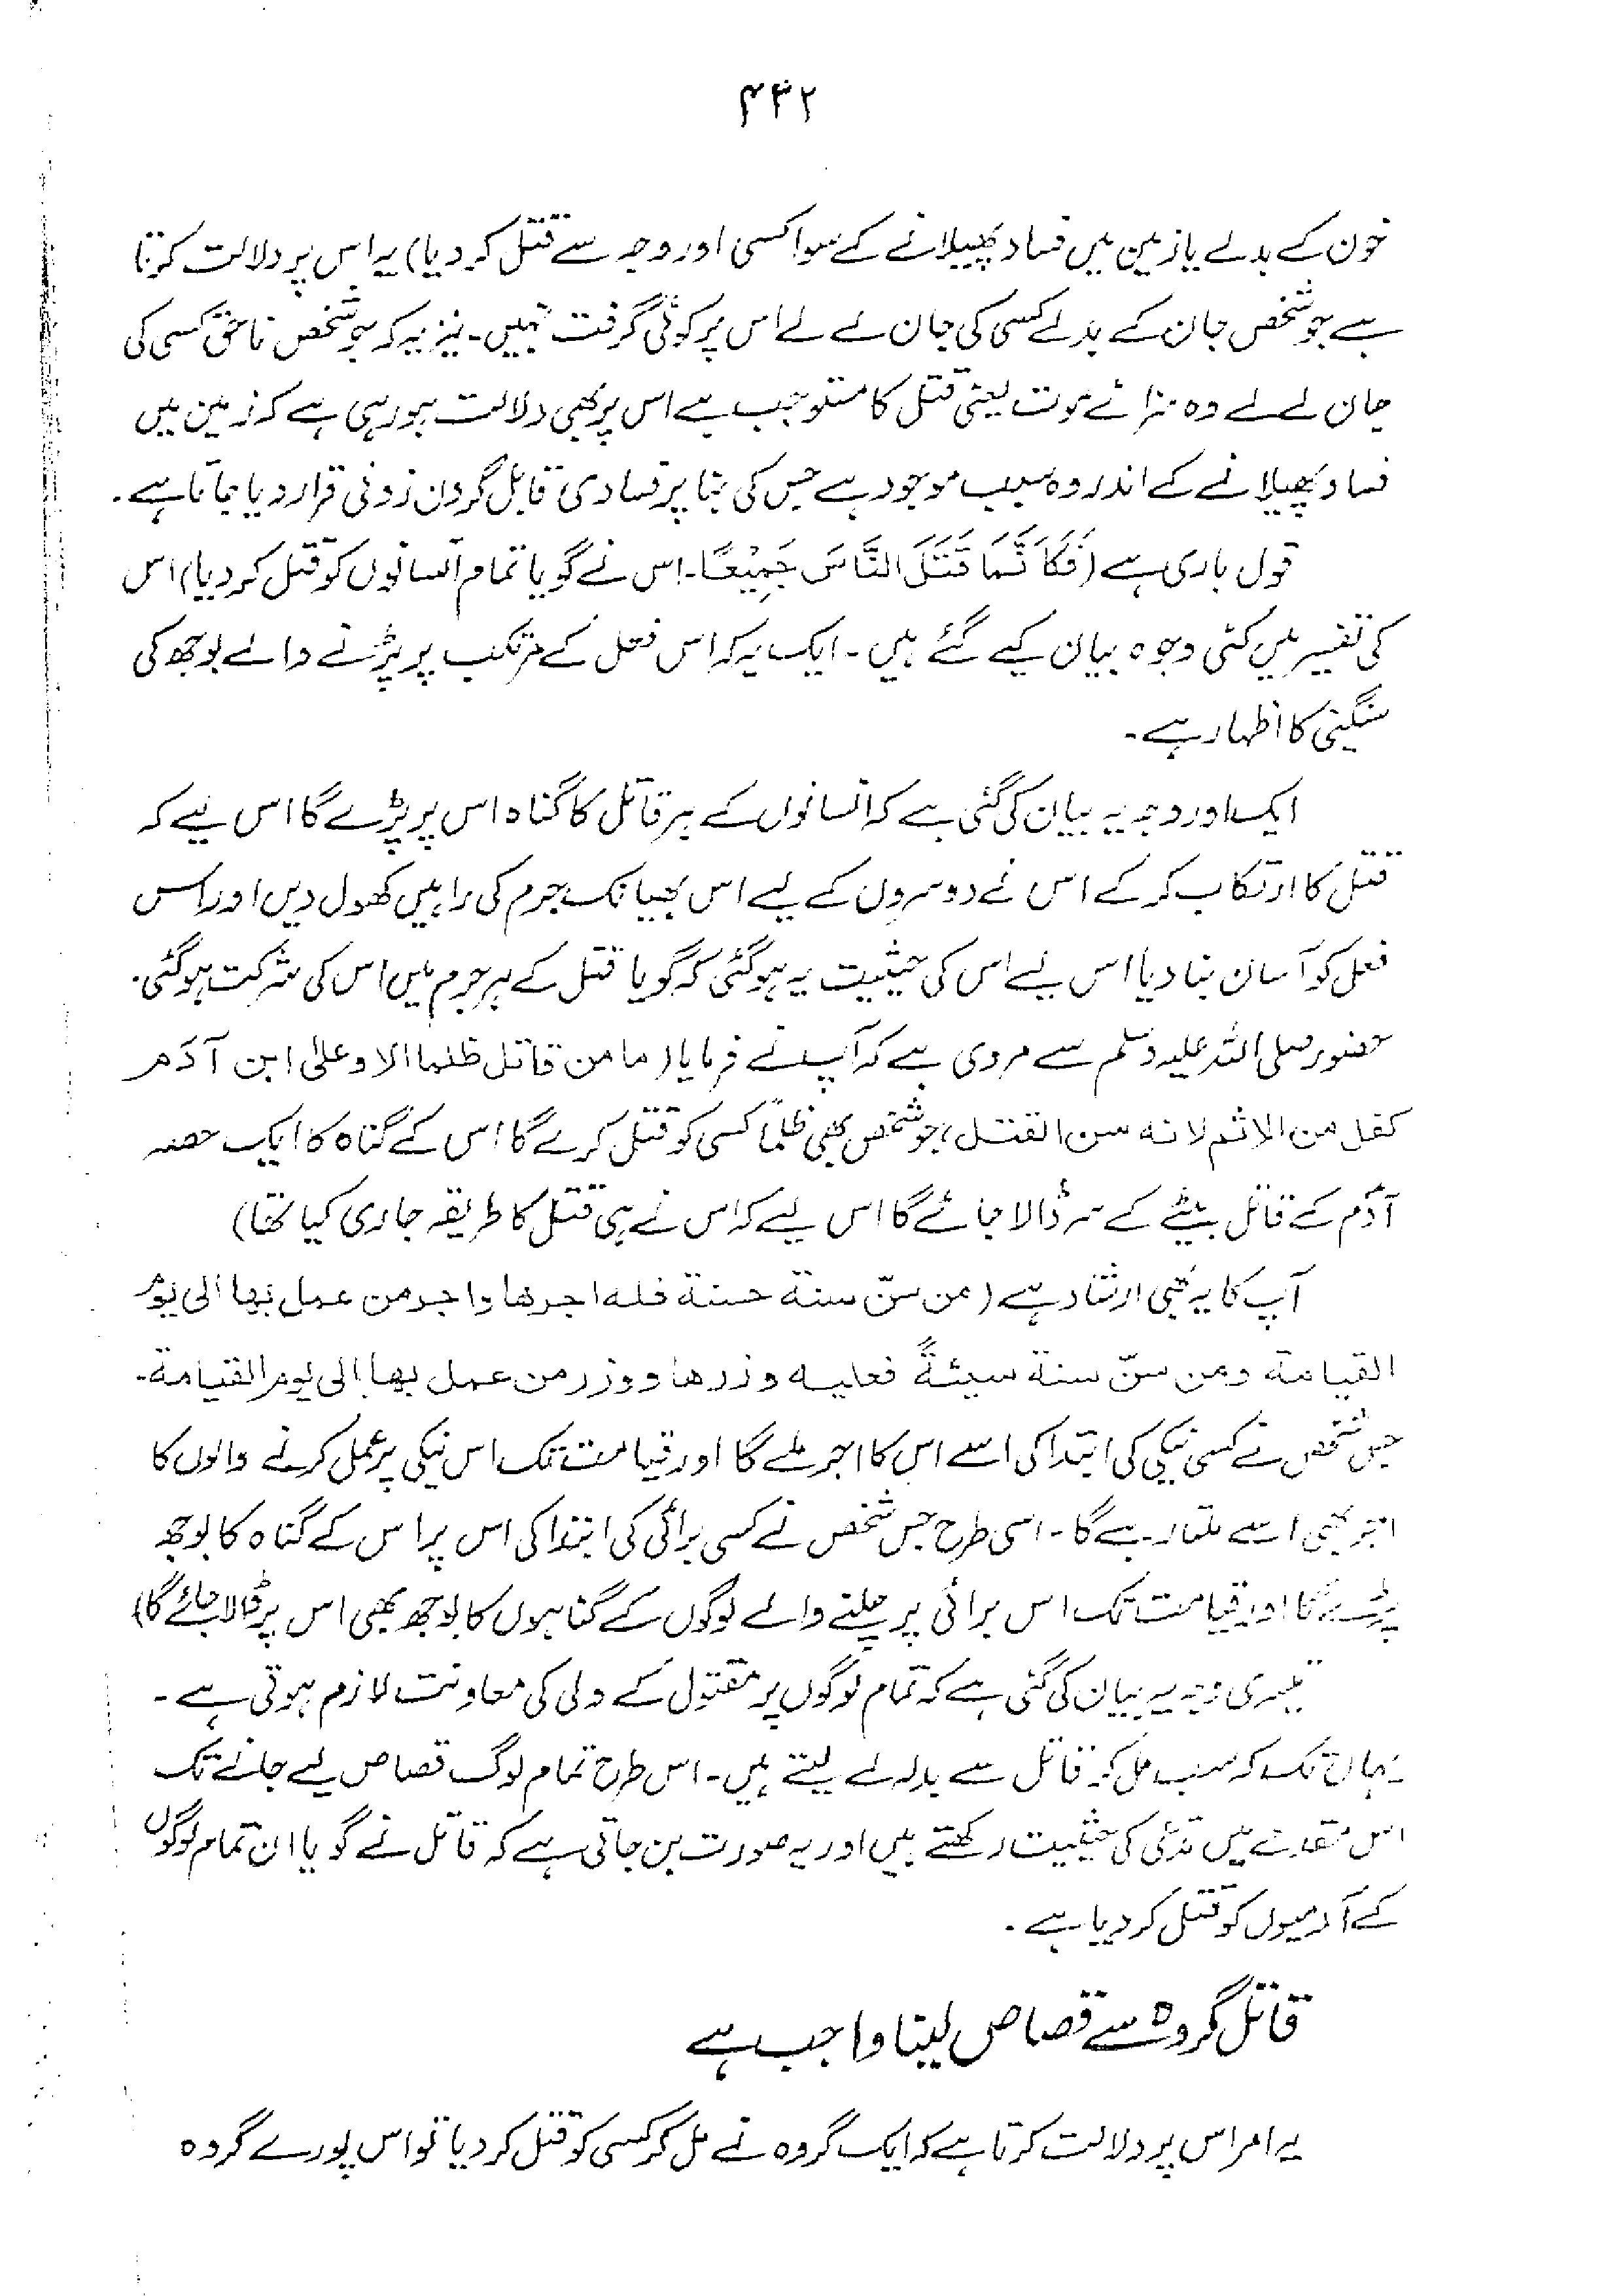 ۴۳۲
خون کے بدلے یا زمین میں فساد پھیلانے کے سوا کسی اور وجہ سے قتل کر دیا) یہ اس پر دلالت کرتا
ہے جو شخص جان کے بدلے کسی کی جان لے لے اس پر کوئی گرفت نہیں۔ نیز یہ کہ جو شخص ناحق کسی کی
جان لے لے وہ سزائے موت یعنی قتل کا مستوجب ہے اس پر بھی دلالت ہو رہی ہے کہ زمین میں
فساد پھیلانے کے اندر وہ سبب موجود ہے جس کی بنا پر فسادی قابل گردن زدنی قرار دیا جاتا ہے۔
قول باری ہے (فَكَاَنَّمَا قَتَلَ النَّاسَ جَمِيْعًا۔ اس نے گویا تمام انسانوں کو قتل کر دیا) اس
کی تفسیر میں کئی وجوہ بیان کیے گئے ہیں۔ ایک یہ کہ اس فعل کے مرتکب پر پڑنے والے بوجھ کی
سنگینی کا اظہار ہے۔
ایک اور وجہ یہ بیان کی گئی ہے کہ انسانوں کے ہر قاتل کا گناہ اس پر پڑے گا اس لیے کہ
قتل کا ارتکاب کر کے اس نے دوسروں کے لیے اس بھیانک جرم کی راہیں کھول دیں اور اس
فعل کو آسان بنا دیا اس لیے اس کی حیثیت یہ ہو گئی کہ گویا قتل کے ہر جرم میں اس کی شرکت ہو گئی۔
حضور صلی اللہ علیہ وسلم سے مروی ہے کہ آپ نے فرمایا (ما من قاتل ظلما الا وعلی ابن آدم
كفل من الاثم لانه سن القتل، جو شخص بھی ظلماً کسی کو قتل کرے گا اس کے گناہ کا ایک حصہ
آدمؑ کے قاتل بیٹے کے سر ڈالا جائے گا اس لیے کہ اس نے ہی قتل کا طریقہ جاری کیا تھا)
آپ کا یہ بھی ارشاد ہے (من سنّ سنة حسنة فله اجرها واجر من عمل بها الى يوم
القيامة ومن سنّ سنة سيئةً فعليه وزرها ووزر من عمل بها الى يوم القيامة۔
جس شخص نے کسی نیکی کی ابتدا کی اسے اس کا اجر ملے گا اور قیامت تک اس نیکی پر عمل کرنے والوں کا
اجر بھی اسے ملتا رہے گا۔ اسی طرح جس شخص نے کسی برائی کی ابتدا کی اس پر اس کے گناہ کا بوجھ
پڑے گا اور قیامت تک اس برائی پر چلنے والے لوگوں کے گناہوں کا بوجھ بھی اس پر ڈالا جائے گا)
تیسری وجہ یہ بیان کی گئی ہے کہ تمام لوگوں پر مقتول کے ولی کی معاونت لازم ہوتی ہے۔
یہاں تک کہ سب مل کر قاتل سے بدلہ لے لیتے ہیں۔ اس طرح تمام لوگ قصاص لیے جانے تک
اس مقدمے میں مدعی کی حیثیت رکھتے ہیں اور یہ صورت بن جاتی ہے کہ قاتل نے گویا ان تمام لوگوں
کے آدمیوں کو قتل کر دیا ہے۔
قاتل گروہ سے قصاص لینا واجب ہے
یہ امر اس پر دلالت کرتا ہے کہ ایک گروہ نے مل کر کسی کو قتل کر دیا تو اس پورے گروہ